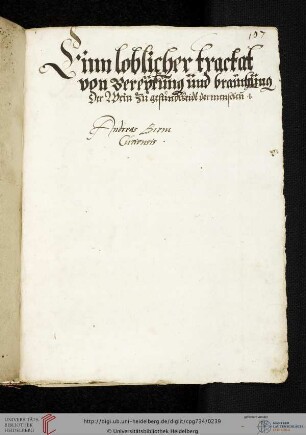 197
Einn loblicher tractat
von Bereyttung und brauchung
Der Wein Zu gesundthendt der menschen
Andreas
UNIVERSITÄTS-
BIBLIOTHEK
HEIDELBERG
http://digi.ub.uni-heidelberg.de/diglit/cpg734/0239
© Universitätsbibliothek Heidelberg